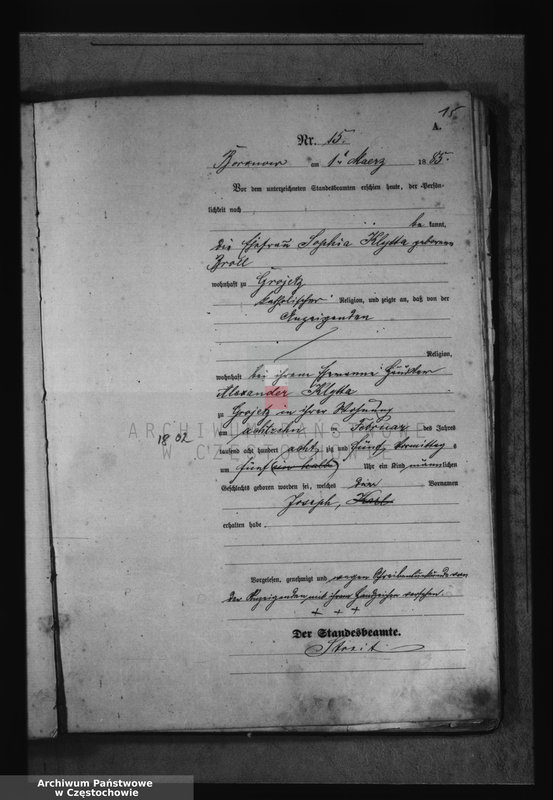 15
A.
Nr. 15.
Boronow am 1ten Maerz 1885.
Vor dem unterzeichneten Standesbeamten erschien heute, der Persön-
lichkeit nach
be kannt,
die Ehefrau Sophia Klytta geborene
Broll
wohnhaft zu Grojetz
katholischer Religion, und zeigte an, daß von der
Anzeigenden
Religion,
wohnhaft bei ihrem Ehemanne Häusler
Alexander Klytta
zu Grojetz in ihrer Wohnung
am achtzehn ten Februar des Jahres
tausend acht hundert achtzig und fünf Vormittag s
um fünf (ein halb) Uhr ein Kind männlichen
Geschlechts geboren worden sei, welches den Vornamen
Joseph, Karl
erhalten habe
18 02
Vorgelesen, genehmigt und wegen Schreibensunkunde von
der Anzeigenden mit ihrem Handzeichen versehen.
+ + +
Der Standesbeamte.
ARCHIWUM PAŃSTWOWE
W CZĘSTOCHOWIE
Archiwum Państwowe
w Częstochowie